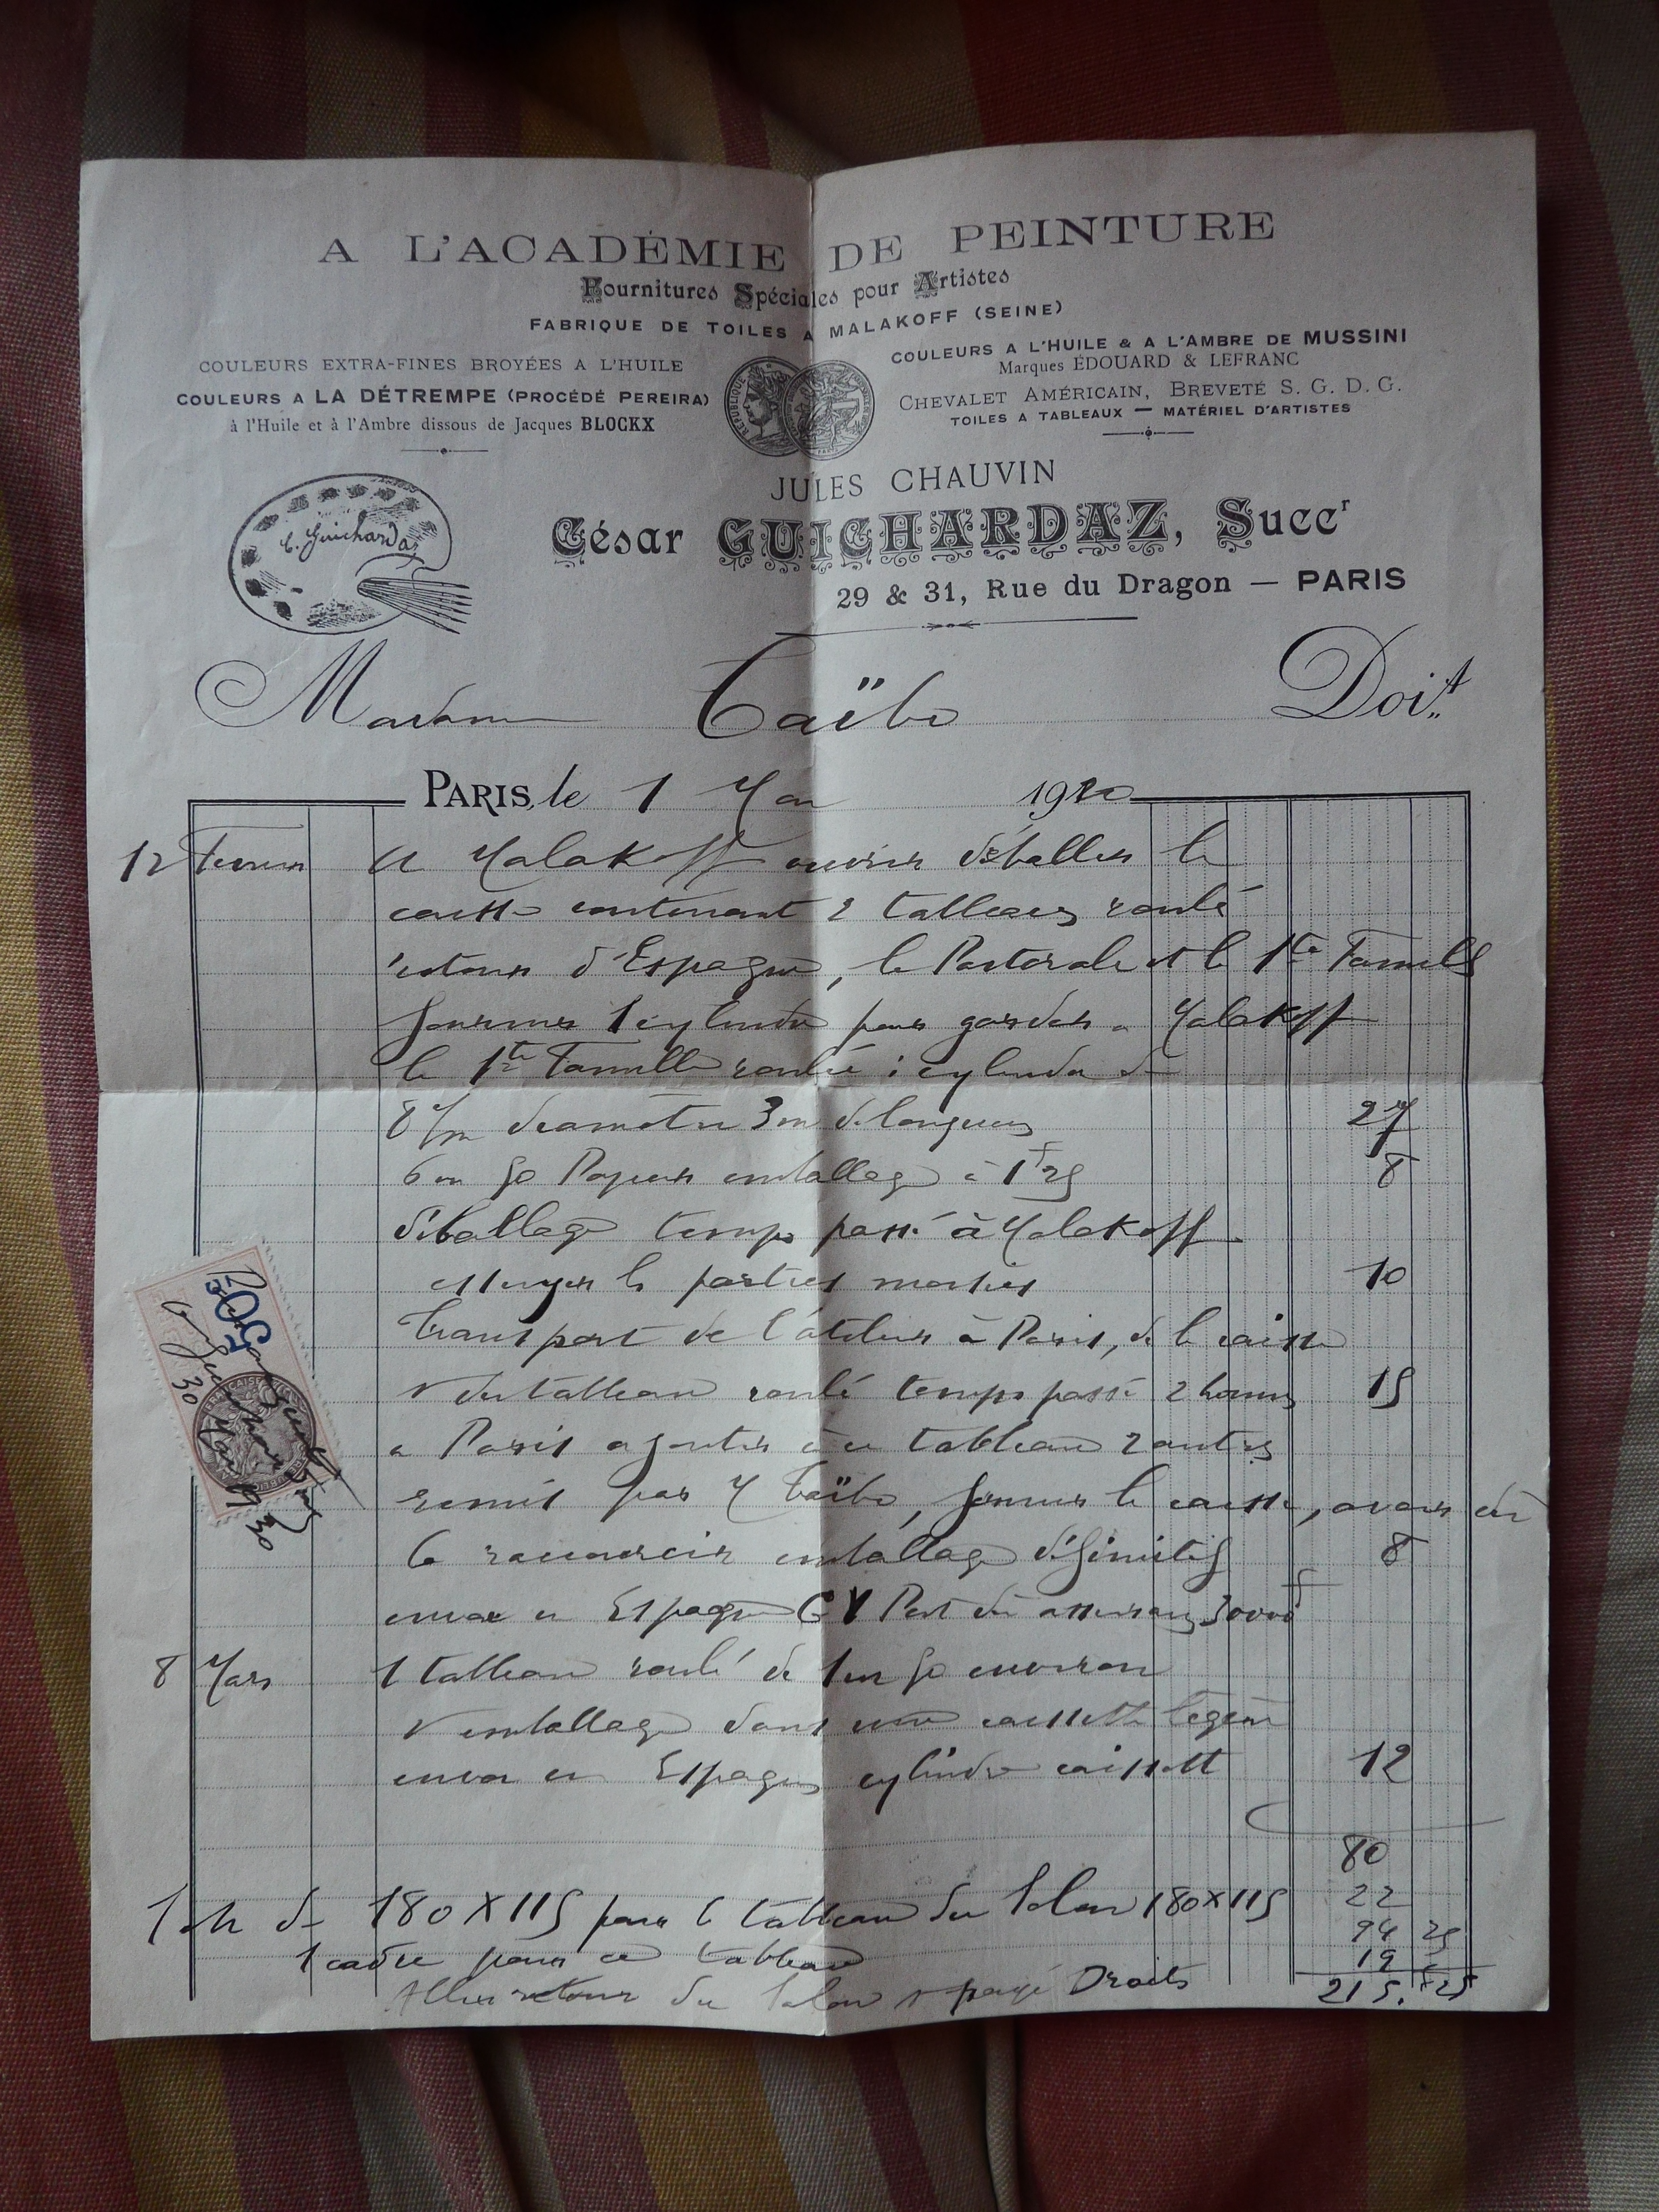 A L'ACADÉMIE DE PEINTURE
Fournitures Spéciales pour Artistes
FABRIQUE DE TOILES A MALAKOFF (SEINE)
COULEURS EXTRA-FINES BROYÉES A L'HUILE
COULEURS A LA DÉTREMPE (PROCÉDÉ PEREIRA)
à l'Huile et à l'Ambre dissous de Jacques BLOCKX
COULEURS A L'HUILE & A L'AMBRE DE MUSSINI
Marques ÉDOUARD & LEFRANC
CHEVALET AMÉRICAIN, BREVETÉ S. G. D. G.
TOILES A TABLEAUX — MATÉRIEL D'ARTISTES
JULES CHAUVIN
C. Guichardaz
César GUICHARDAZ, Succr
29 & 31, Rue du Dragon — PARIS
Madame Taïbo Doit
PARIS, le 1 Mai 19
12 Fevrier a Malakoff ouvrir déballer la
caisse contenant 2 tableaux roulé
retour d'Espagne, la Pastorale et la 1te Famille
fournir 1 cylindre pour garder a Malakoff
la 1te Famille roulée : cylindre de
8 diametre 3m de longueur 27
6m 50 Papier emballage à 1f25 8
déballage temps passé à Malakoff
essuyer les parties 10
Transport de l'atelier à Paris, de la caisse
du tableau roulé temps passé 2 heures 15
a Paris ajouter à ce tableau 2 autres
remis par M Taïbo, fermer la caisse, avoir dû
la raccourcir emballage définitif 8
envoi en Espagne GV Port dû 30000f
8 Mars 1 tableau roulé de 1m 50 environ
emballage dans une caissette légère
envoi en Espagne cylindre caissette 12
80
1 ch de 180 X 115 pour le tableau du Salon 180 X 115 22
1 cadre pour ce tableau 94 25
Aller retour du Salon et payé Droits 19
215.f25
50c
30